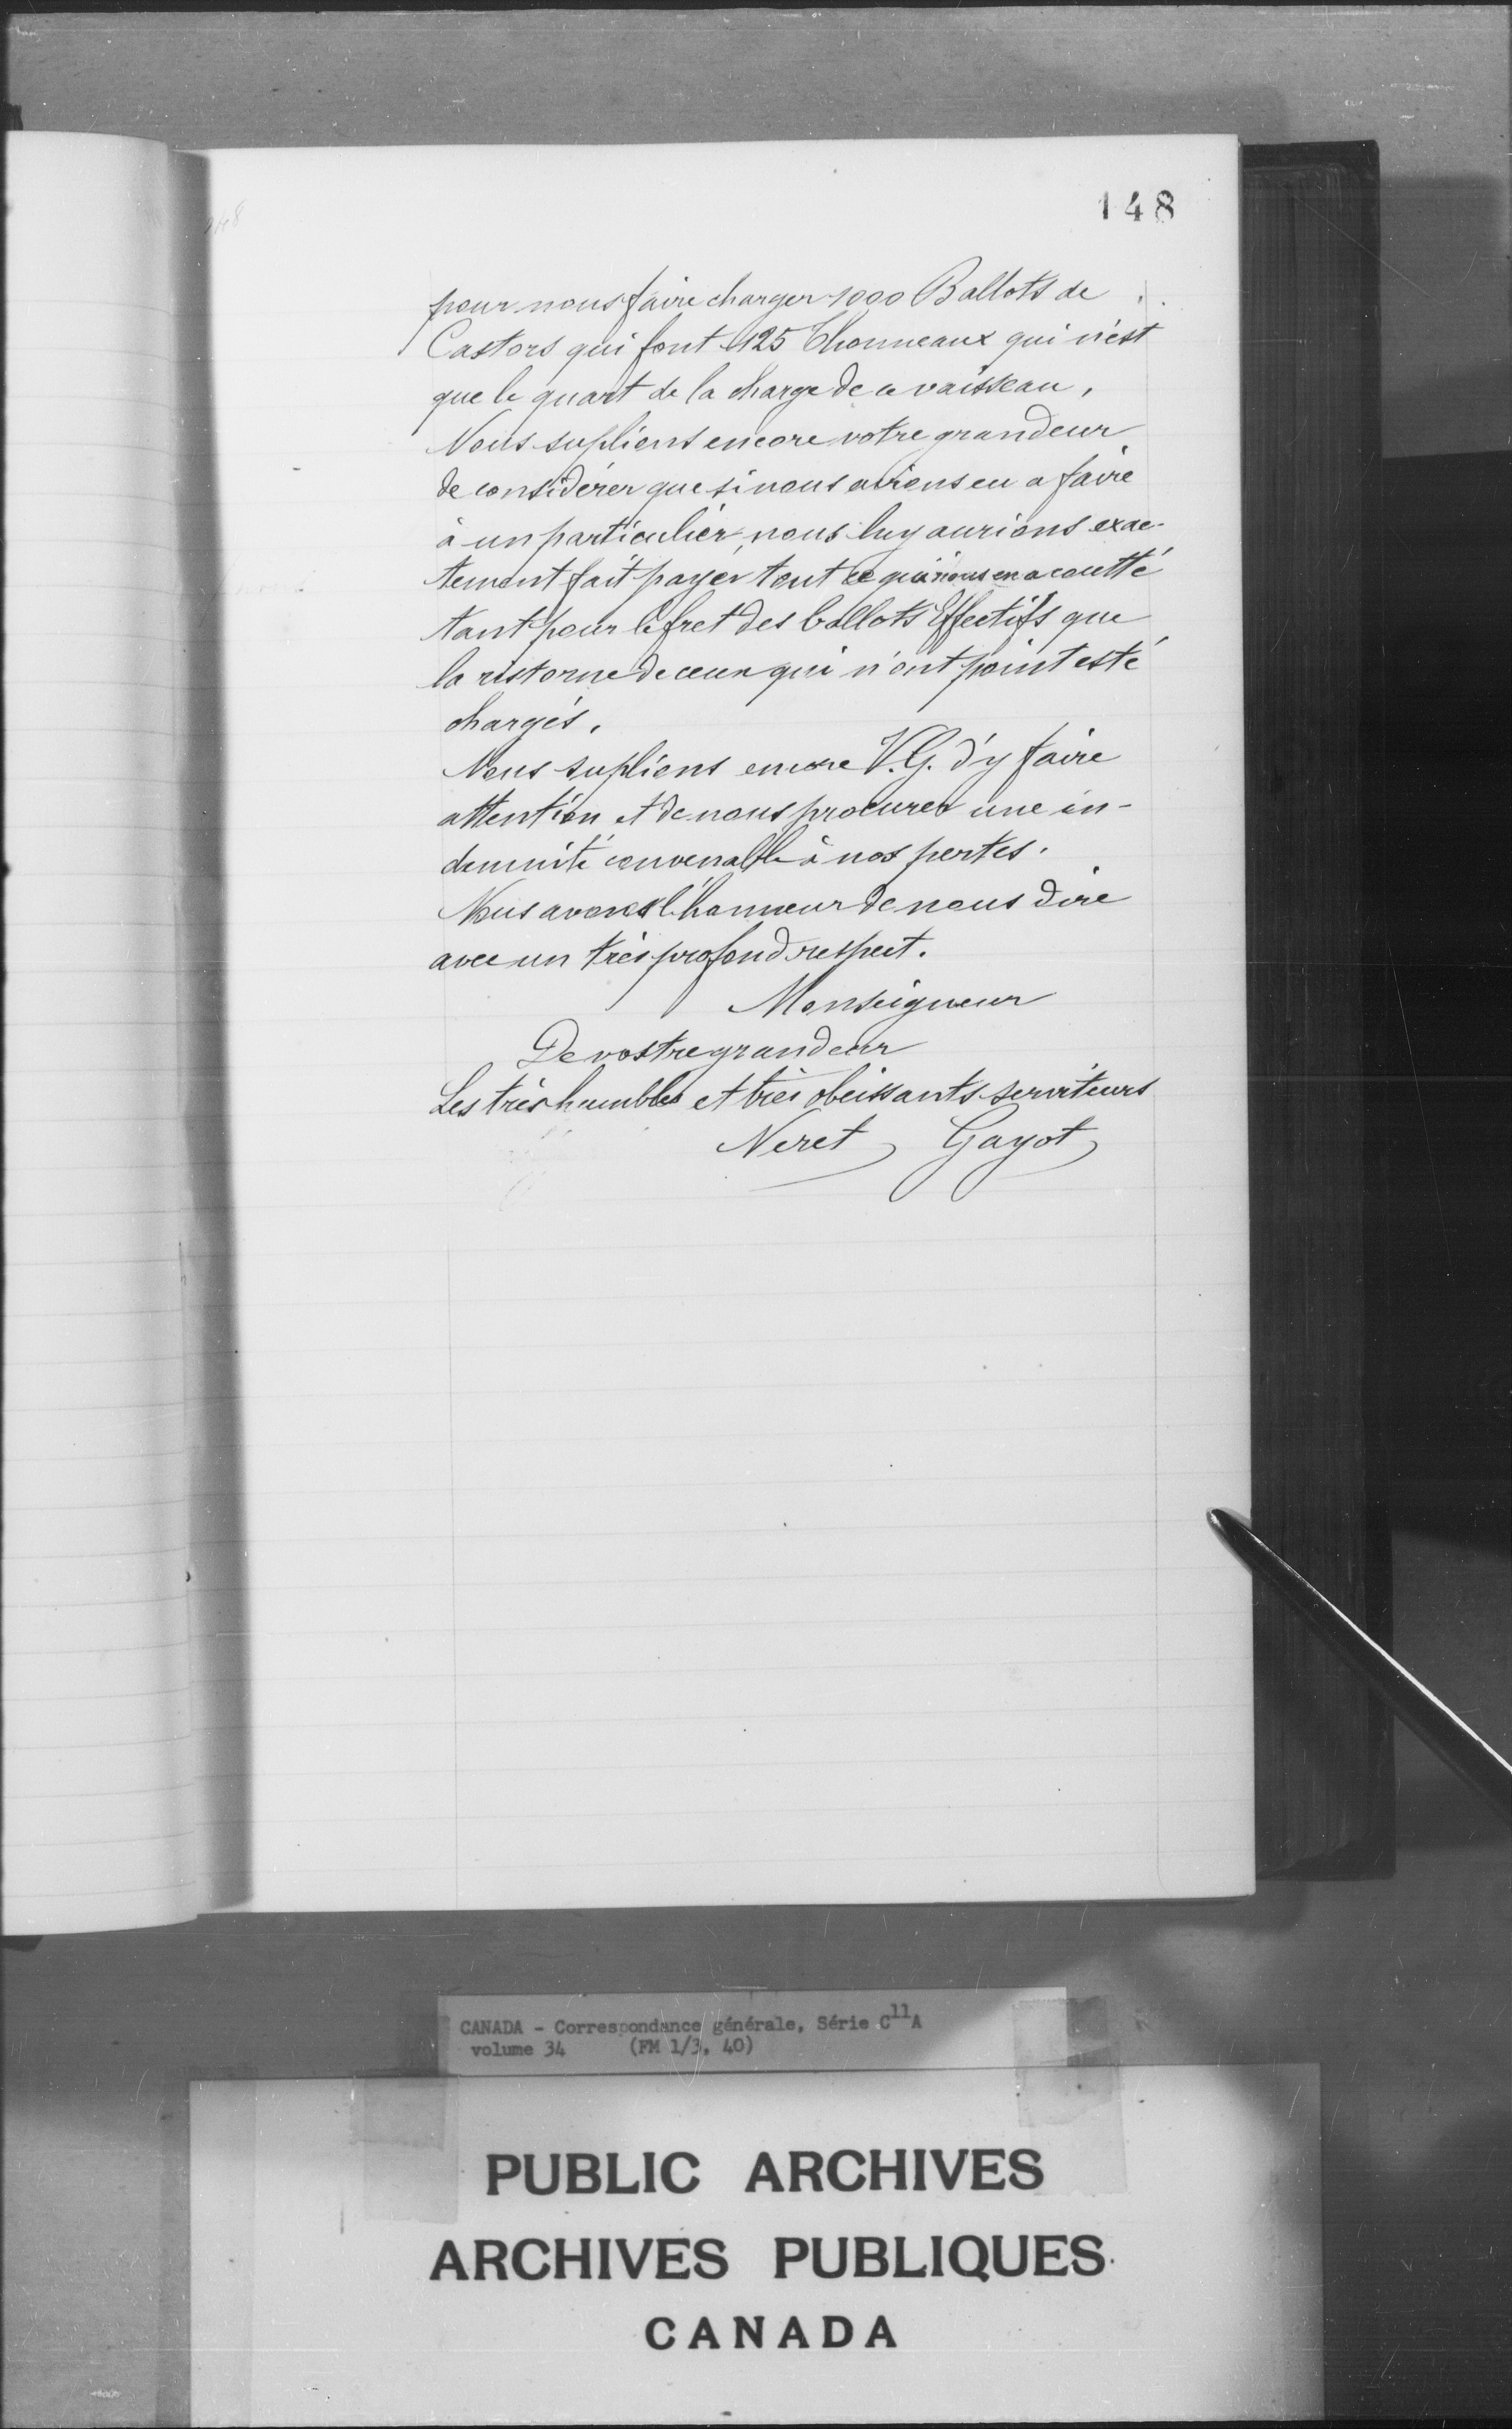 148
pour nous faire charger 1000 Ballots de
Castors qui font 125 Thonneaux qui n'est
que le quart de la charge de ce vaisseau,
Nous suplions encore votre grandeur
de considérer que si nous avions eu a faire
à un particulier, nous luy aurions exac-
tement fait payer tout ce qui nous en a coutté
tant pour le fret des ballots Effectifs que
la ristorne de ceux qui n'ont point esté
chargés.
Nous suplions encore V.G. d'y faire
attention et de nous procurer une in-
demnité convenable à nos pertes.
Nous avons l'honneur de nous dire
avec un très profond respect.
Monseigneur
De vostre grandeur
Les très humbles et très obeissants serviteurs
Neret Gayot
CANADA - Correspondance générale, Série C11A
volume 34 (FM 1/3, 40)
PUBLIC ARCHIVES
ARCHIVES PUBLIQUES
CANADA